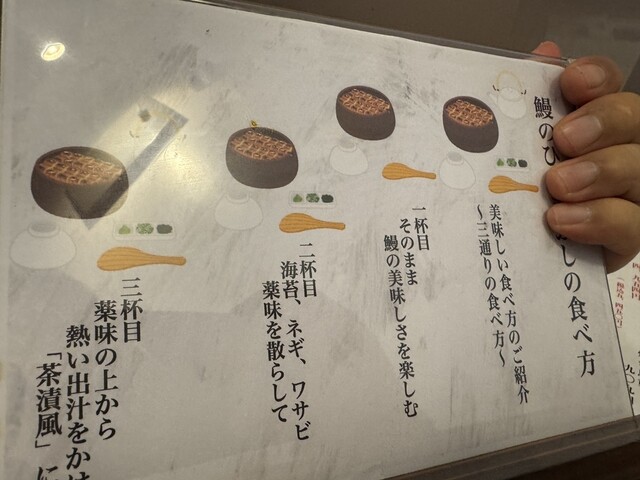 鰻のひ
しの食べ方
美味しい食べ方のご紹介
〜三通りの食べ方〜
一杯目
そのまま
鰻の美味しさを楽しむ
二杯目
海苔、ネギ、ワサビ
薬味を散らして
三杯目
薬味の上から
熱い出汁をかけ
「茶漬風」に